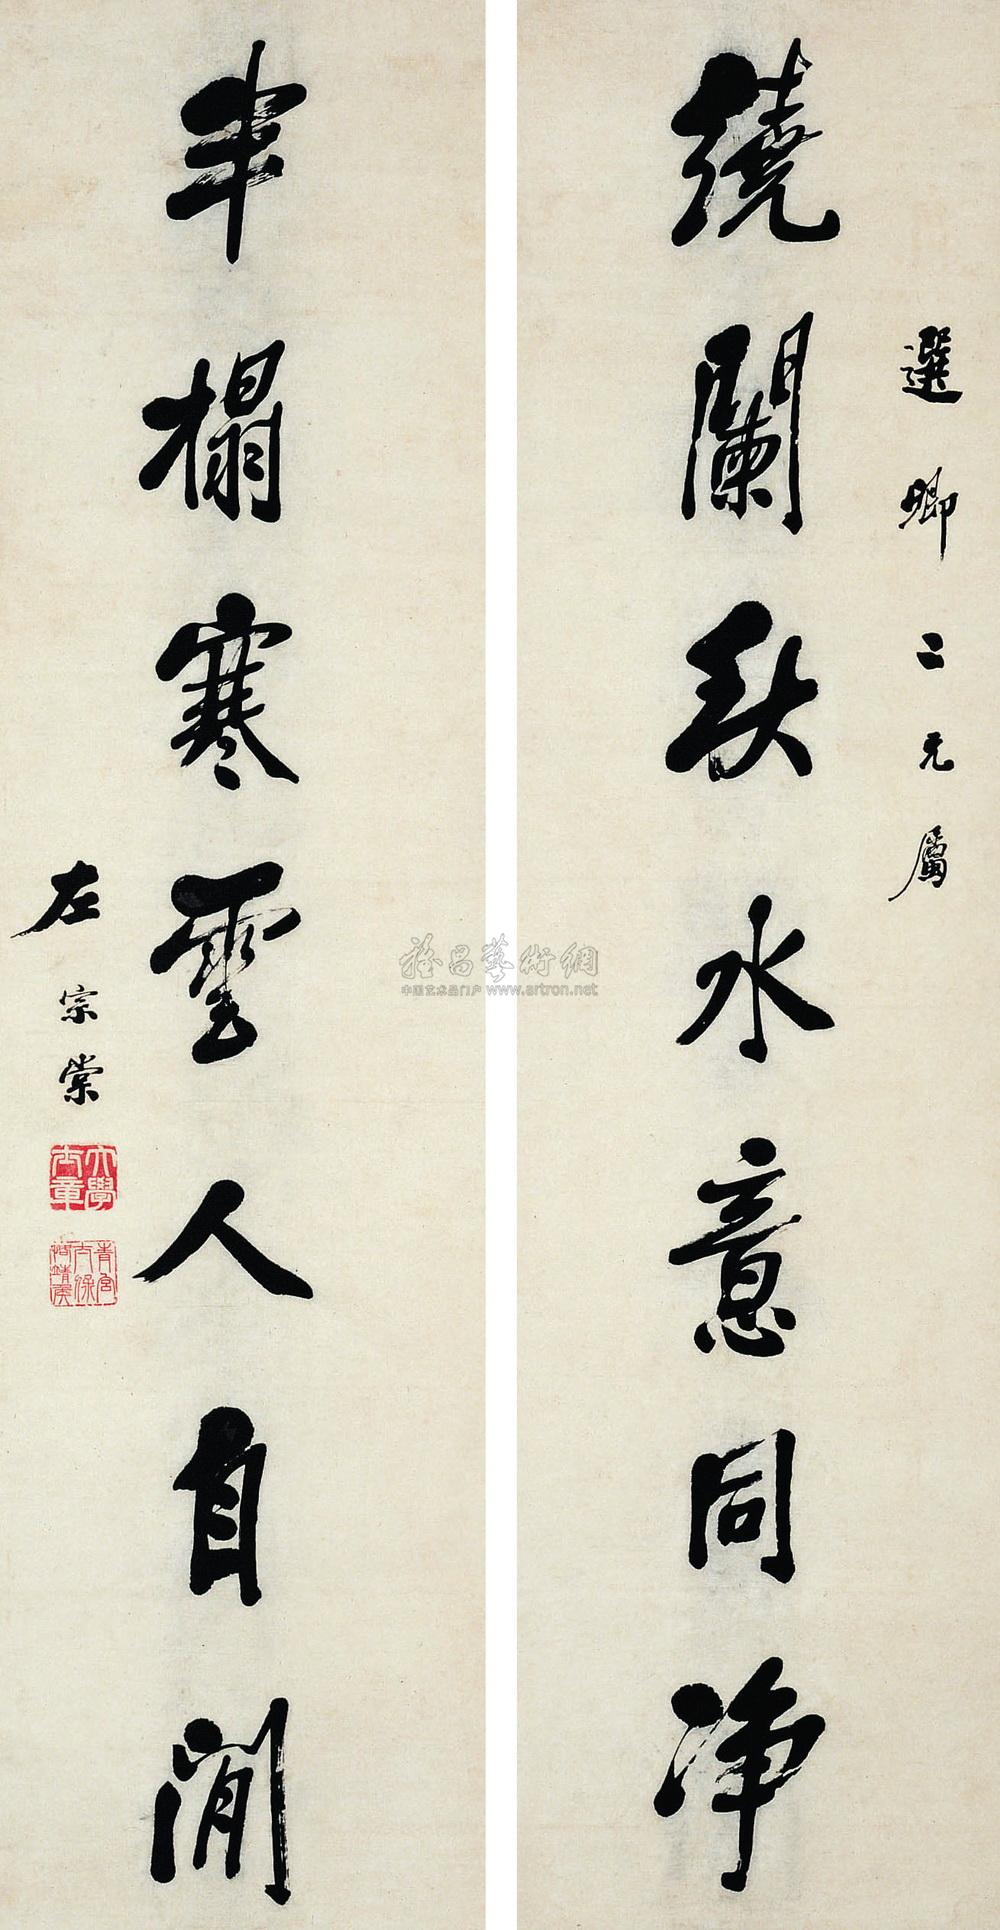 選卿二兄屬
繞闌秋水意同净
半榻寒雲人自閒
左宗棠
大學士章
青宮太保恪靖侯
雅昌藝術網
中国艺术品门户 www.artron.net